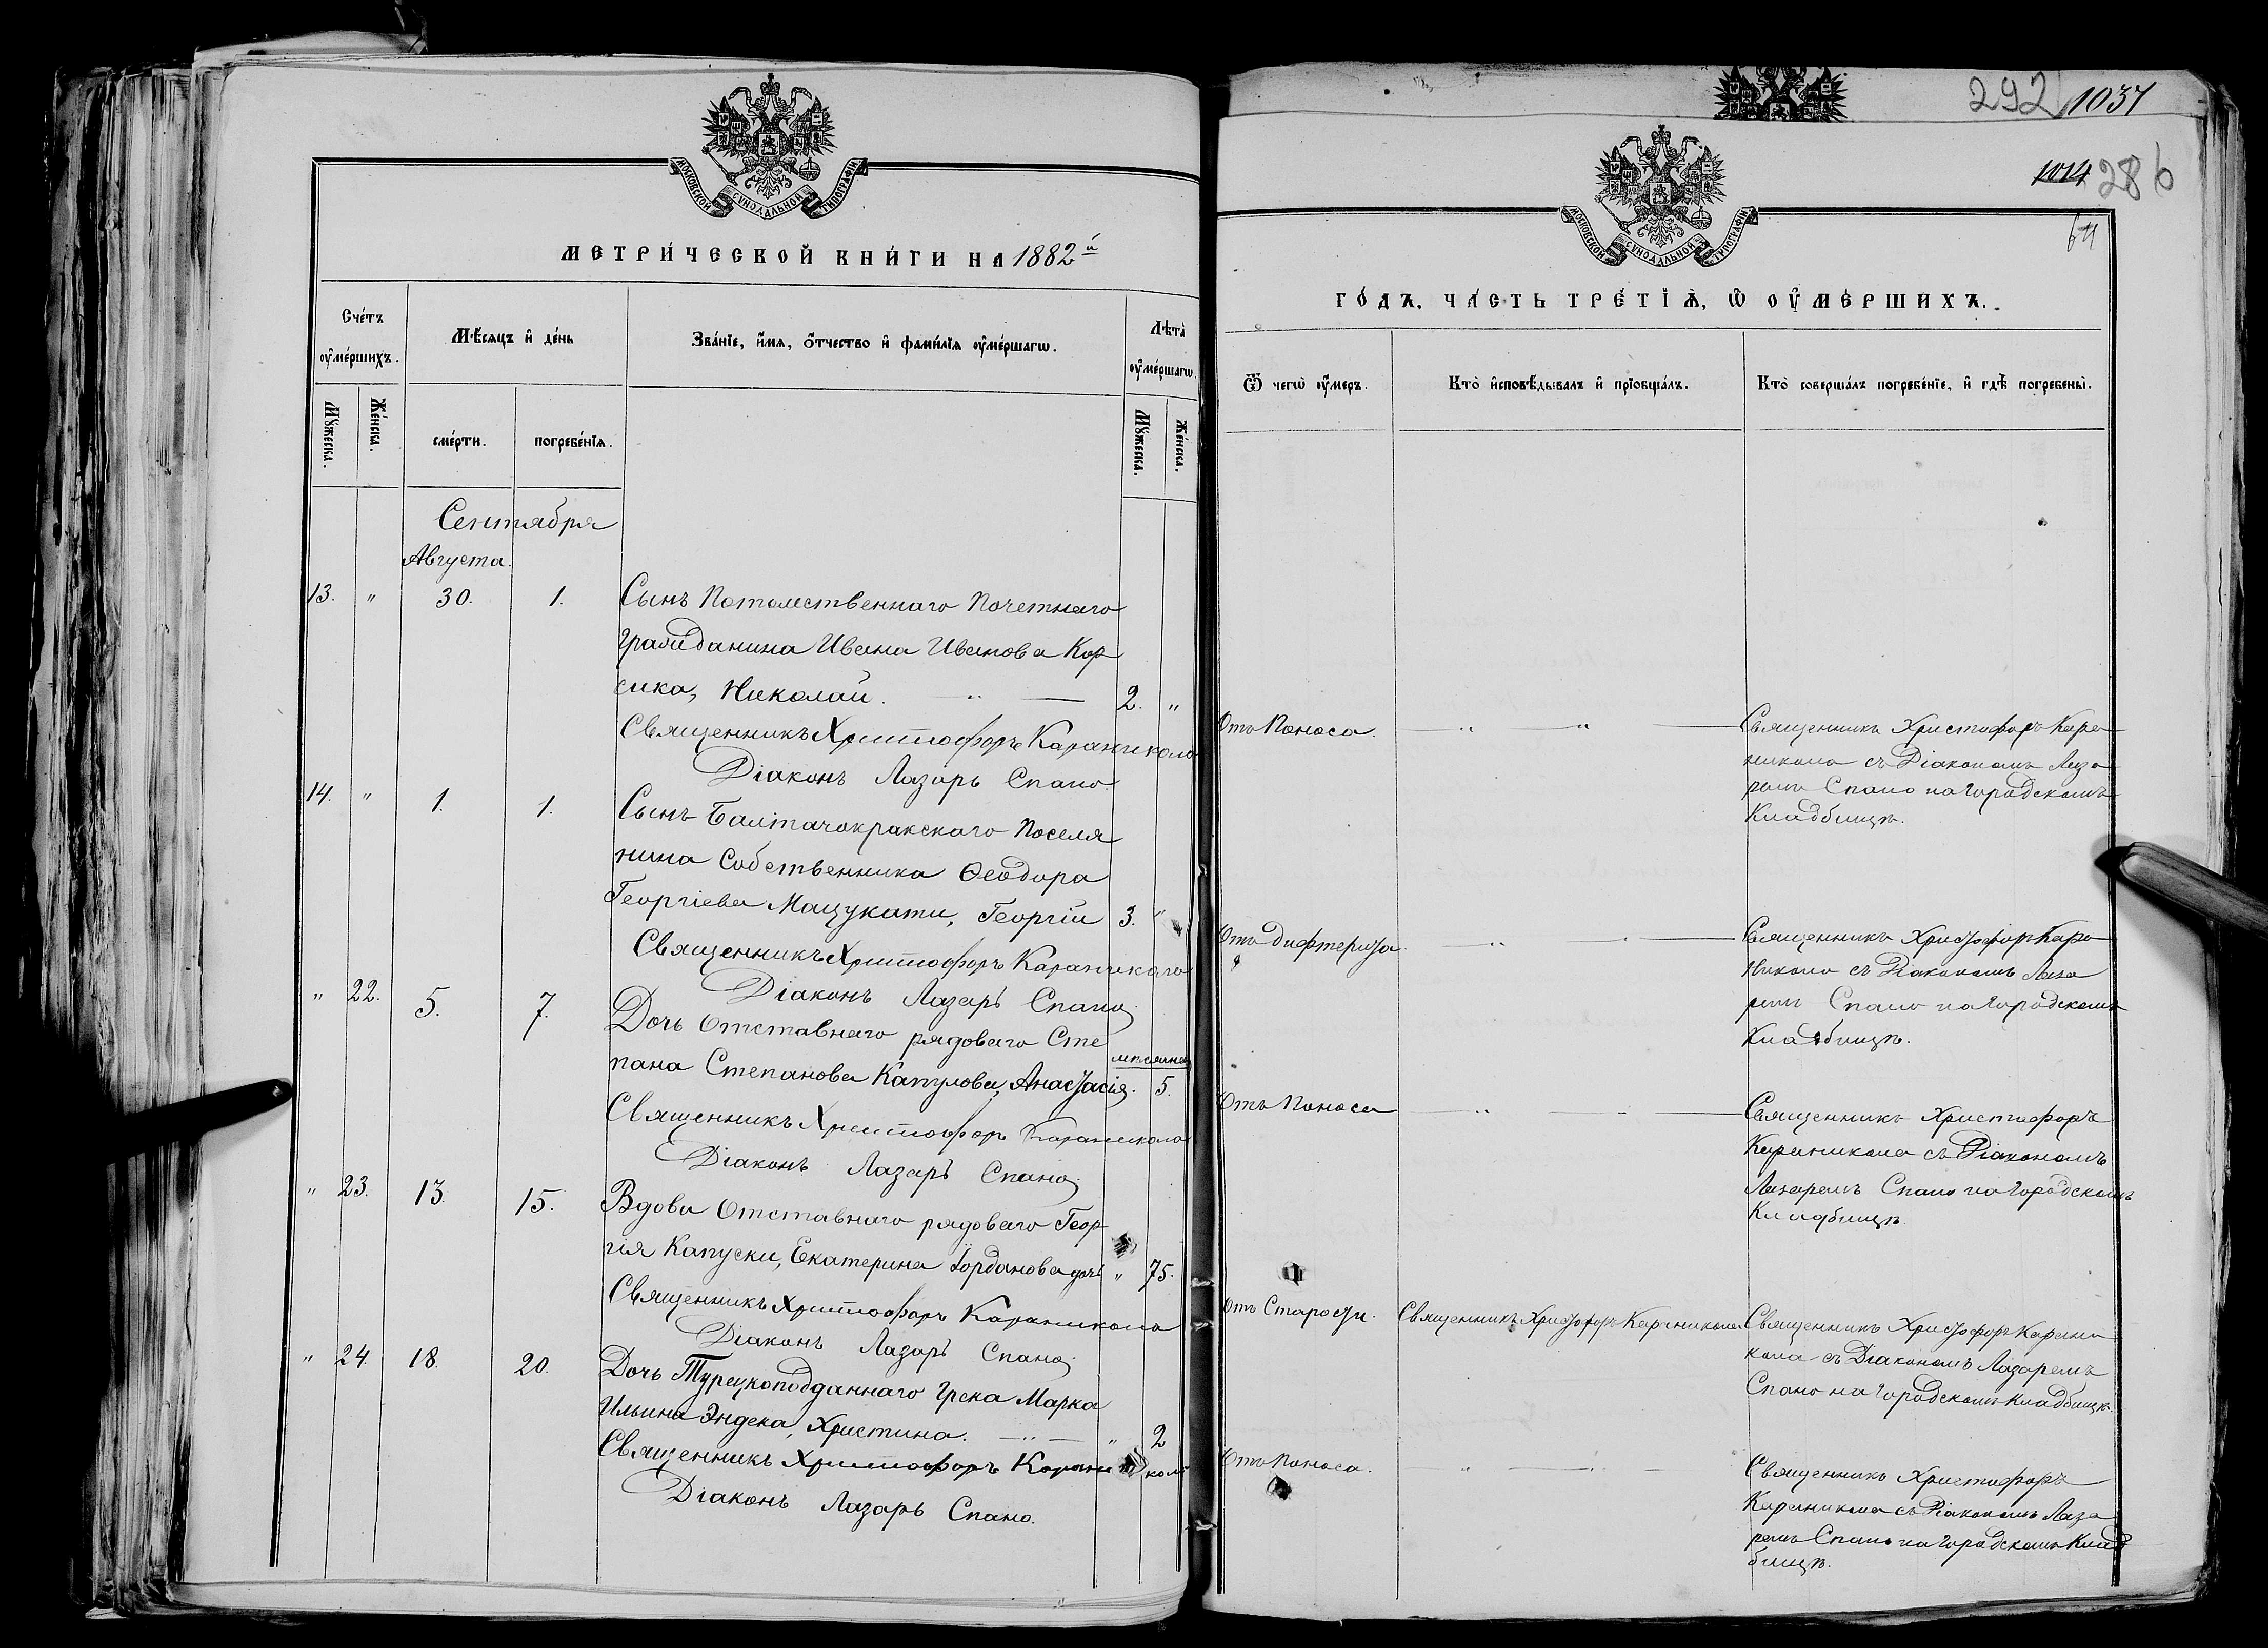 МОСКОВСКОЙ СѴНОДАЛЬНОЙ ТИПОГРАФІИ
МЕТРИ́ЧЕСКОЙ КНИ́ГИ НА 1882й
Сче́тъ ᲂу҆ме́ршихъ.
Мѣ́сяцъ и҆ де́нь
Зва́нїе, и҆́мя, ѻ҆́тчество и҆ фами́лїя ᲂу҆ме́ршагѡ.
Лѣта̀ ᲂу҆ме́ршагѡ.
Мꙋ́жеска.
Же́нска.
сме́рти.
погребе́нїя.
Мꙋ́жеска.
Же́нска.
Сентября
Августа.
13. " 30. 1. Сынъ Потомственнаго Почетнаго
Гражданина Ивана Иванова Кор
сика, Николай. 2. "
Священникъ Христофоръ Караникола
Діаконъ Лазарь Спано.
14. " 1. 1. Сынъ Балтачокракского Поселя
нина Собственника Ѳеодора
Георгіева Мацукати, Георгій 3. "
Священникъ Христофоръ Караникола
Діаконъ Лазарь Спано
" 22. 5. 7. Дочь Отставнаго рядоваго Сте
пана Степанова Капулова, Анастасія. мѣсяцев 5.
Священникъ Христофоръ Караникола
Діаконъ Лазарь Спано
" 23. 13. 15. Вдова Отставнаго рядоваго Геор
гія Капуски, Екатерина Іорданова дочь " 75.
Священникъ Христофоръ Караникола
Діаконъ Лазарь Спано
" 24. 18. 20. Дочь Турецкоподданнаго Грека Марка
Ильина Эндека, Христина. " 2
Священникъ Христофоръ Караникола
Діаконъ Лазарь Спано.
292 1037
1014 286
64
МОСКОВСКОЙ СѴНОДАЛЬНОЙ ТИПОГРАФІИ
ГО́ДЪ, ЧА́СТЬ ТРЕ́ТЇѦ, Ѡ҆ ОУ҆МЕ́РШИХЪ.
Ѿ чегѡ̀ ᲂу҆́меръ.
Кто̀ и҆сповѣ́дывалъ и҆ прїобща́лъ.
Кто̀ соверша́лъ погребе́нїе, и҆ гдѣ̀ погребены̀.
Отъ Поноса. Священникъ Христофоръ Кара
никола съ Діакономъ Лаза
ремъ Спано на Городскомъ
Кладбищѣ.
Отъ дифтерита. Священникъ Христофоръ Кара
никола съ Діакономъ Лаза
ремъ Спано на Городскомъ
Кладбищѣ.
Отъ Поноса Священникъ Христофоръ
Караникола съ Діакономъ
Лазаремъ Спано на Городскомъ
Кладбищѣ.
Отъ Старости. Священникъ Христофоръ Караникола Священникъ Христофоръ Карани
кола съ Діакономъ Лазаремъ
Спано на Городскомъ Кладбищѣ.
Отъ Поноса. Священникъ Христофоръ
Караникола съ Діакономъ Лаза
ремъ Спано на Городскомъ Клад
бищѣ.